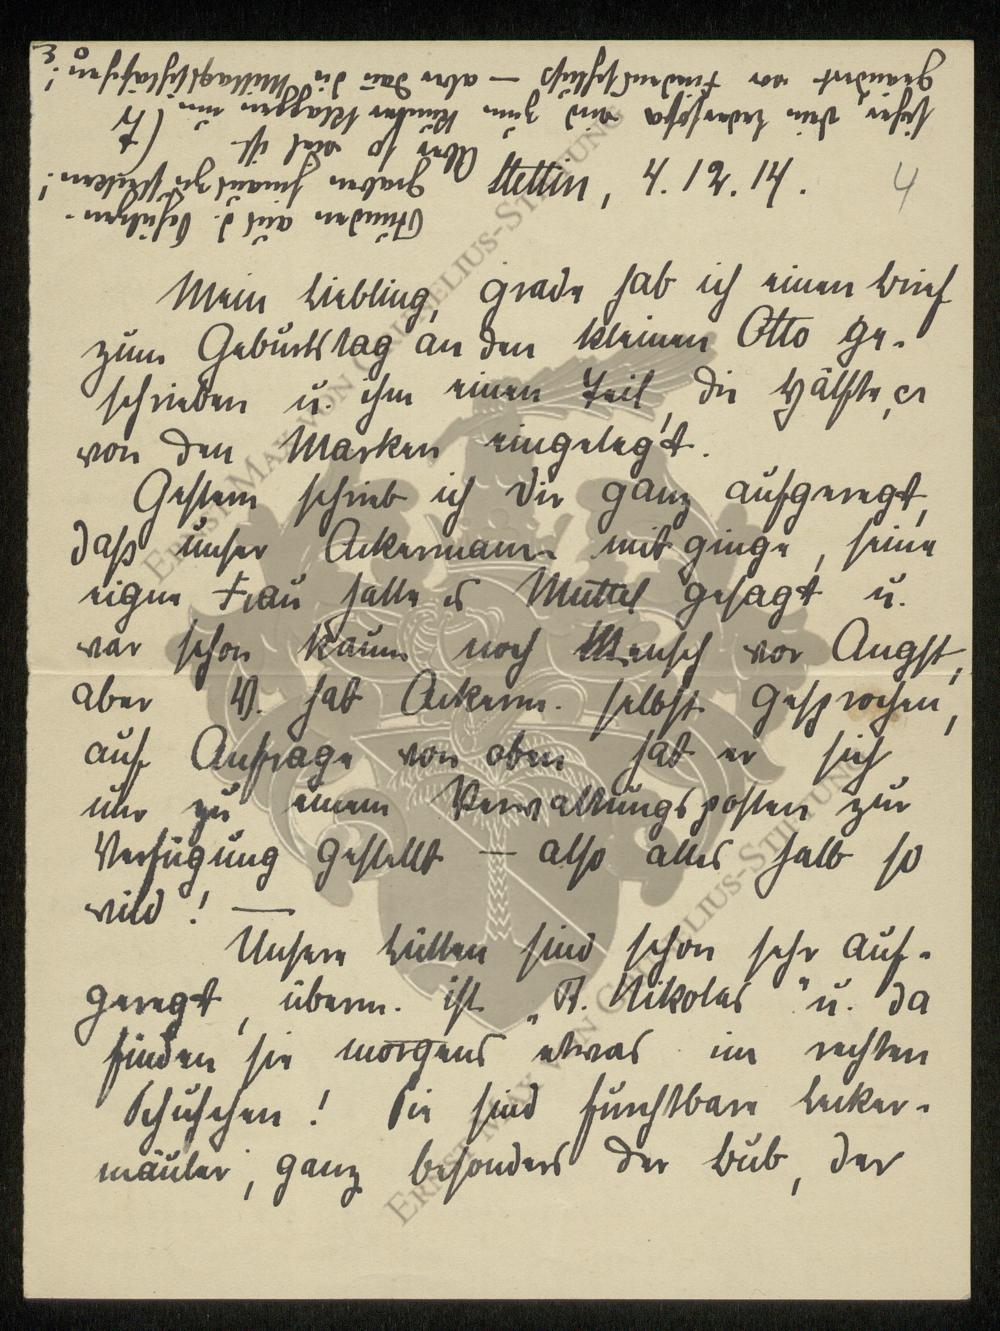 Stettin, 4.12.14.
4
Mein Liebling, grade hab ich einen Brief
zum Geburtstag an den kleinen Otto ge-
schrieben u. ihm einen Teil, die Hälfte, 
von den Marken eingelegt.
Gestern schrieb ich Dir ganz aufgeregt,
daß unser Ackermann mit ginge, seine
eigne Frau hatte es Muttel gesagt u.
war schon kaum noch Mensch vor Angst,
aber V. hat Ackerm. selbst gesprochen,
auf Anfrage von oben hat er sich
nur zu einem Verwaltungsposten zur
Verfügung gestellt — also alles halb so
wild! —
Unsere Lütten sind schon sehr auf-
geregt, überm. ist „St. Nikolas" u. da
finden sie morgens etwas im rechten
Schuhchen! Sie sind furchtbare Lecker-
mäuler, ganz besonders der Bub, der
Stunden aus d. Schützen-
graben hinaus zu stecken!
Aber so viel ist
sicher, Dein Ledersofa wird zum
geändert vor Friedensschluß — aber daß die Mittagsschläfchen
ERNST MAX VON GRUNELIUS-STIFTUNG
ERNST MAX VON GRUNELIUS-STIFTUNG